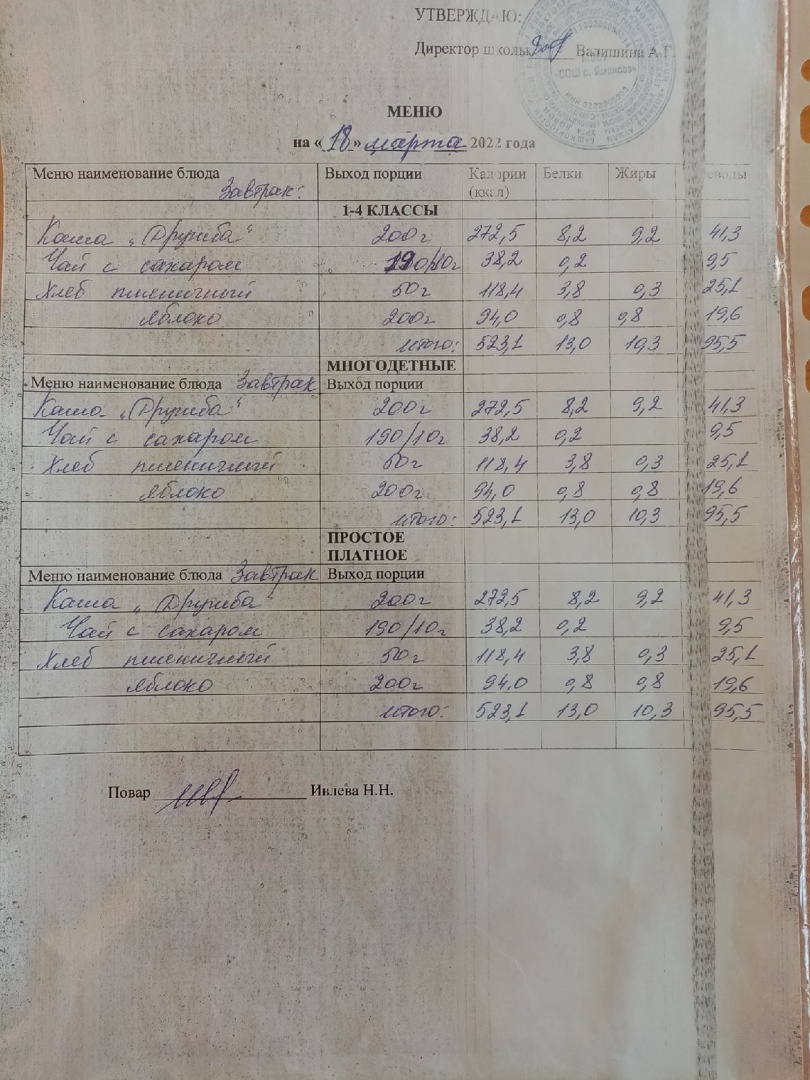 УТВЕРЖДАЮ:
Директор школы Валишина А.Г.
МЕНЮ
на « 18 » марта 2022 года
Меню наименование блюда Завтрак: Выход порции Калории (ккал) Белки Жиры
1-4 КЛАССЫ
Каша „Дружба“ 200г 272,5 8,2 9,2 41,3
Чай с сахаром 190/10г 38,2 0,2 9,5
Хлеб пшеничный 50г 118,4 3,8 0,3 25,1
яблоко 200г 94,0 0,8 0,8 19,6
итого: 523,1 13,0 10,3 95,5
МНОГОДЕТНЫЕ
Меню наименование блюда Завтрак Выход порции
Каша „Дружба“ 200г 272,5 8,2 9,2 41,3
Чай с сахаром 190/10г 38,2 0,2 9,5
Хлеб пшеничный 50г 118,4 3,8 0,3 25,1
яблоко 200г 94,0 0,8 0,8 19,6
итого: 523,1 13,0 10,3 95,5
ПРОСТОЕ
ПЛАТНОЕ
Меню наименование блюда Завтрак Выход порции
Каша „Дружба“ 200г 272,5 8,2 9,2 41,3
Чай с сахаром 190/10г 38,2 0,2 9,5
Хлеб пшеничный 50г 118,4 3,8 0,3 25,1
яблоко 200г 94,0 0,8 0,8 19,6
итого: 523,1 13,0 10,3 95,5
Повар Ивлева Н.Н.